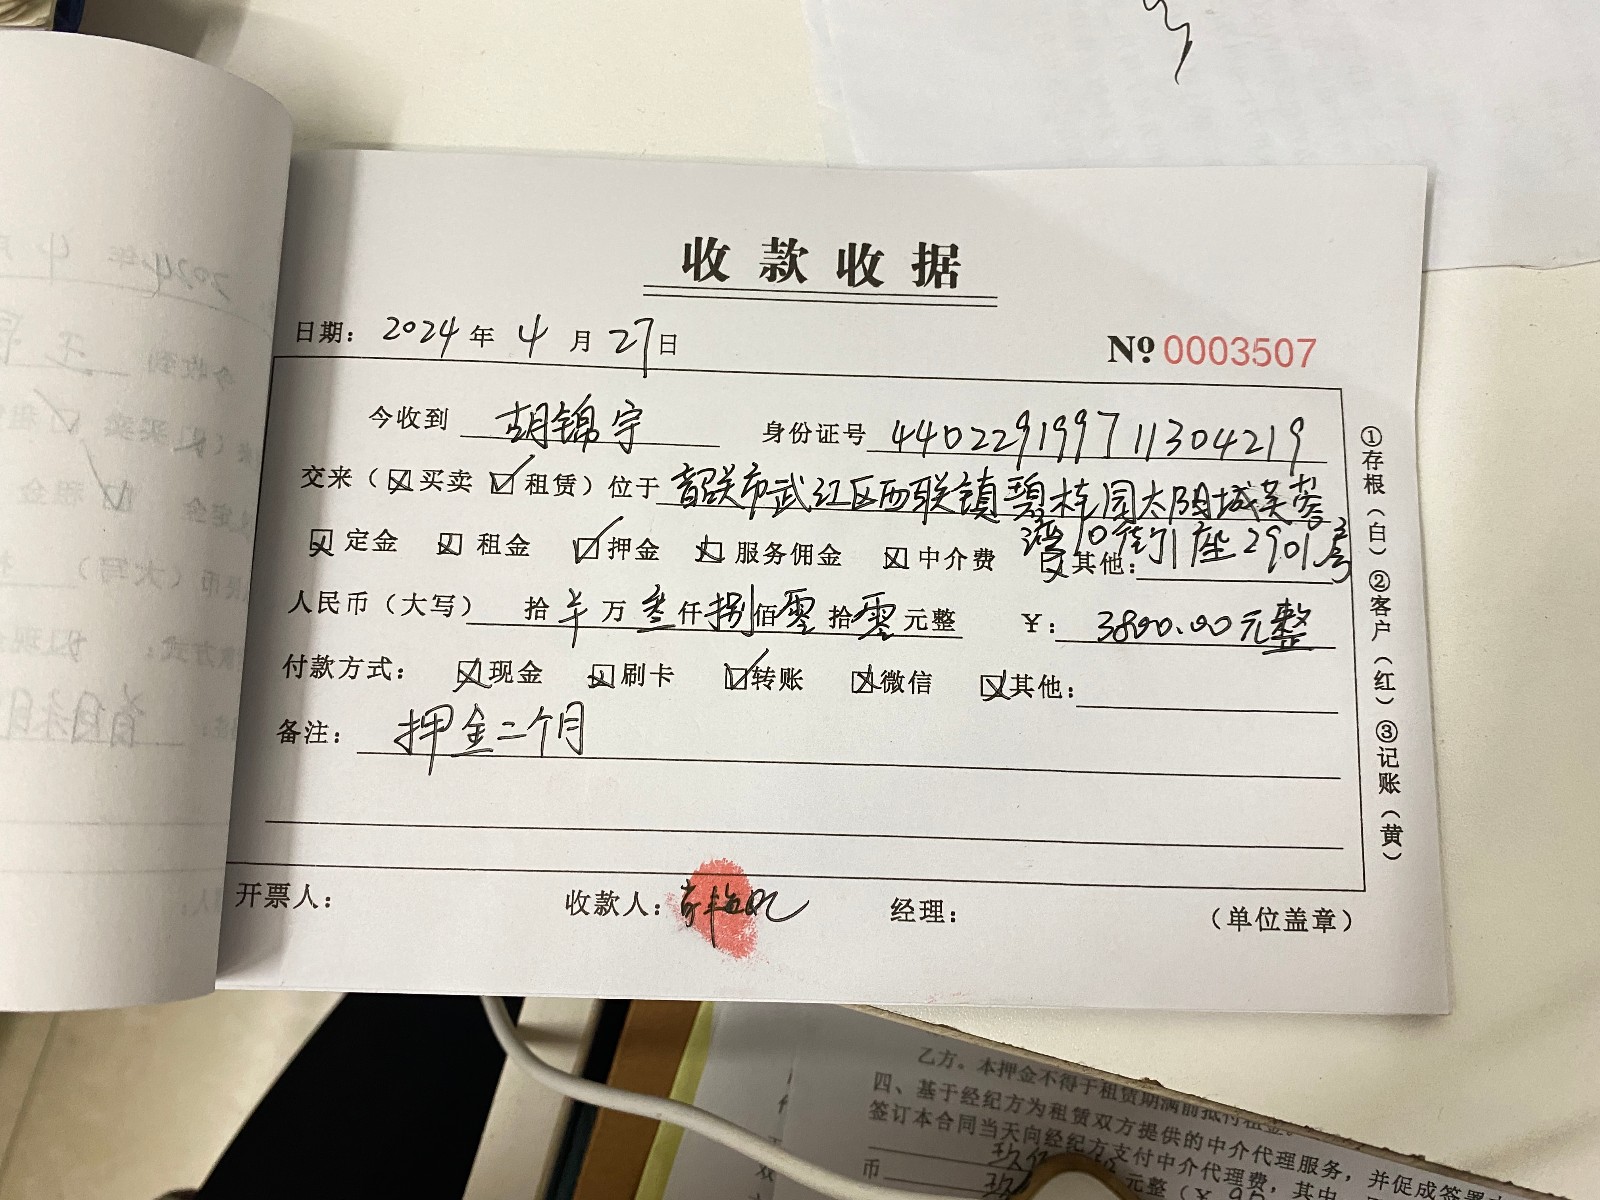 收款收据
日期： 2024 年 4 月 27 日
№ 0003507
今收到 胡锦宇 身份证号 440229199711304219
交来（☒买卖 ☑租赁）位于 韶关市武江区西联镇碧桂园太阳城芙蓉
湾10街1座2901号
☒定金 ☒租金 ☑押金 ☒服务佣金 ☒中介费 ☒其他：
人民币（大写） 拾 万 叁仟捌佰零拾零元整 ￥： 3800.00元整
付款方式： ☒现金 ☒刷卡 ☑转账 ☒微信 ☒其他：
备注： 押金二个月
开票人： 收款人： 经理： （单位盖章）
①存根（白）②客户（红）③记账（黄）
乙方。本押金不得于租赁期满前抵付租金。
四、基于经纪方为租赁双方提供的中介代理服务，并促成签署
签订本合同当天向经纪方支付中介代理费，其中
币 玖 元整（￥